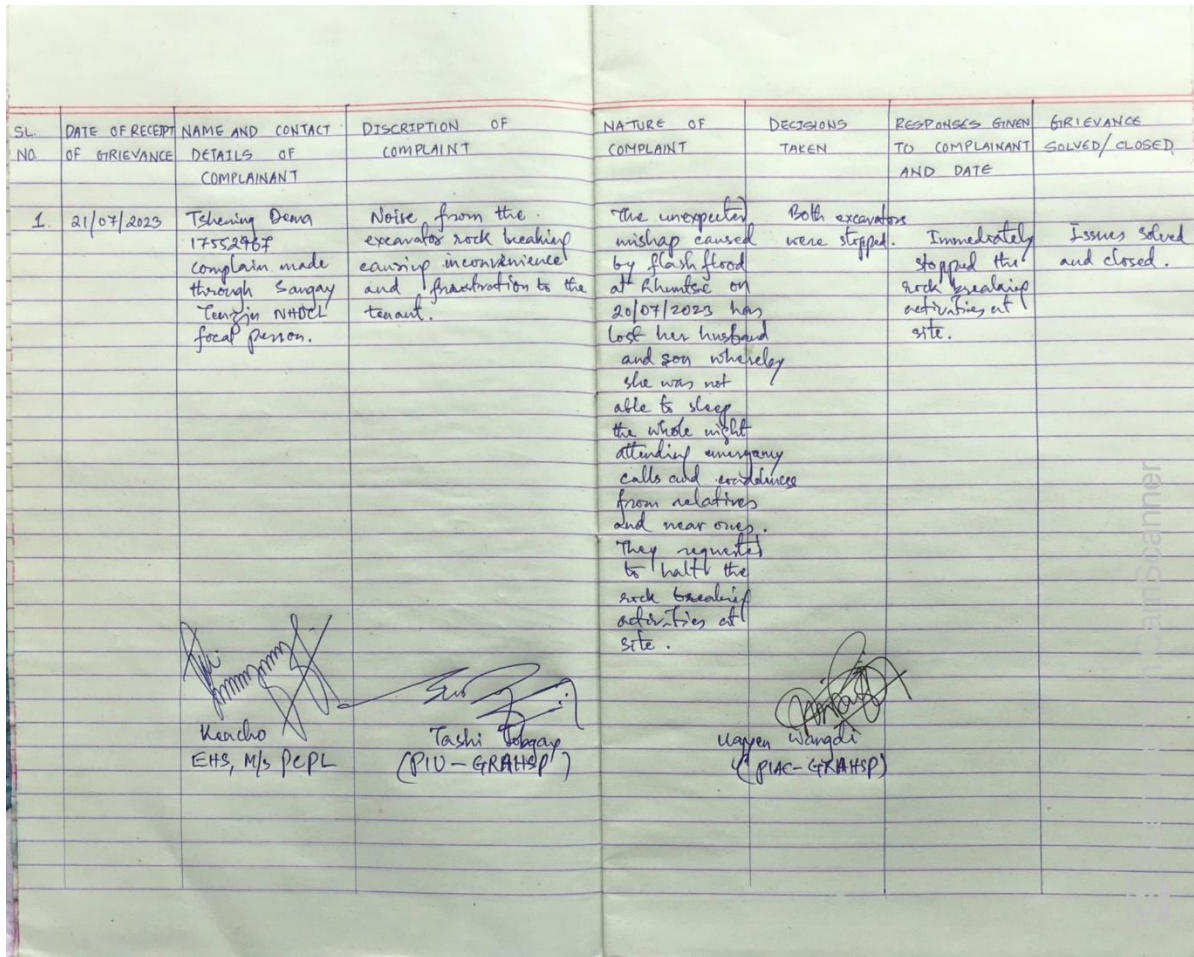 SL. NO.
DATE OF RECEIPT OF GRIEVANCE
NAME AND CONTACT DETAILS OF COMPLAINANT
DISCRIPTION OF COMPLAINT
NATURE OF COMPLAINT
DECISIONS TAKEN
RESPONSES GIVEN TO COMPLAINANT AND DATE
GRIEVANCE SOLVED/CLOSED
1.
21/07/2023
Tshering Dema
17552967
complain made
through Sangay
Tenzin NHDCL
focal person.
Noise from the
excavator rock breaking
causing inconvenience
and frustration to the
tenant.
The unexpected
mishap caused
by flash flood
at on
20/07/2023 has
lost her husband
and son whereby
she was not
able to sleep
the whole night
attending
calls and
from relatives
and near ones.
They requested
to halt the
rock breaking
activities at
site.
Both excavators
were stopped.
Immediately
stopped the
rock breaking
activities at
site.
Issues solved
and closed.
Kencho
EHS, M/s PCPL
Tashi Tobgay
(PIU-GRAHSP)
Ugyen Wangdi
(PIAC-GRAHSP)
CamScanner